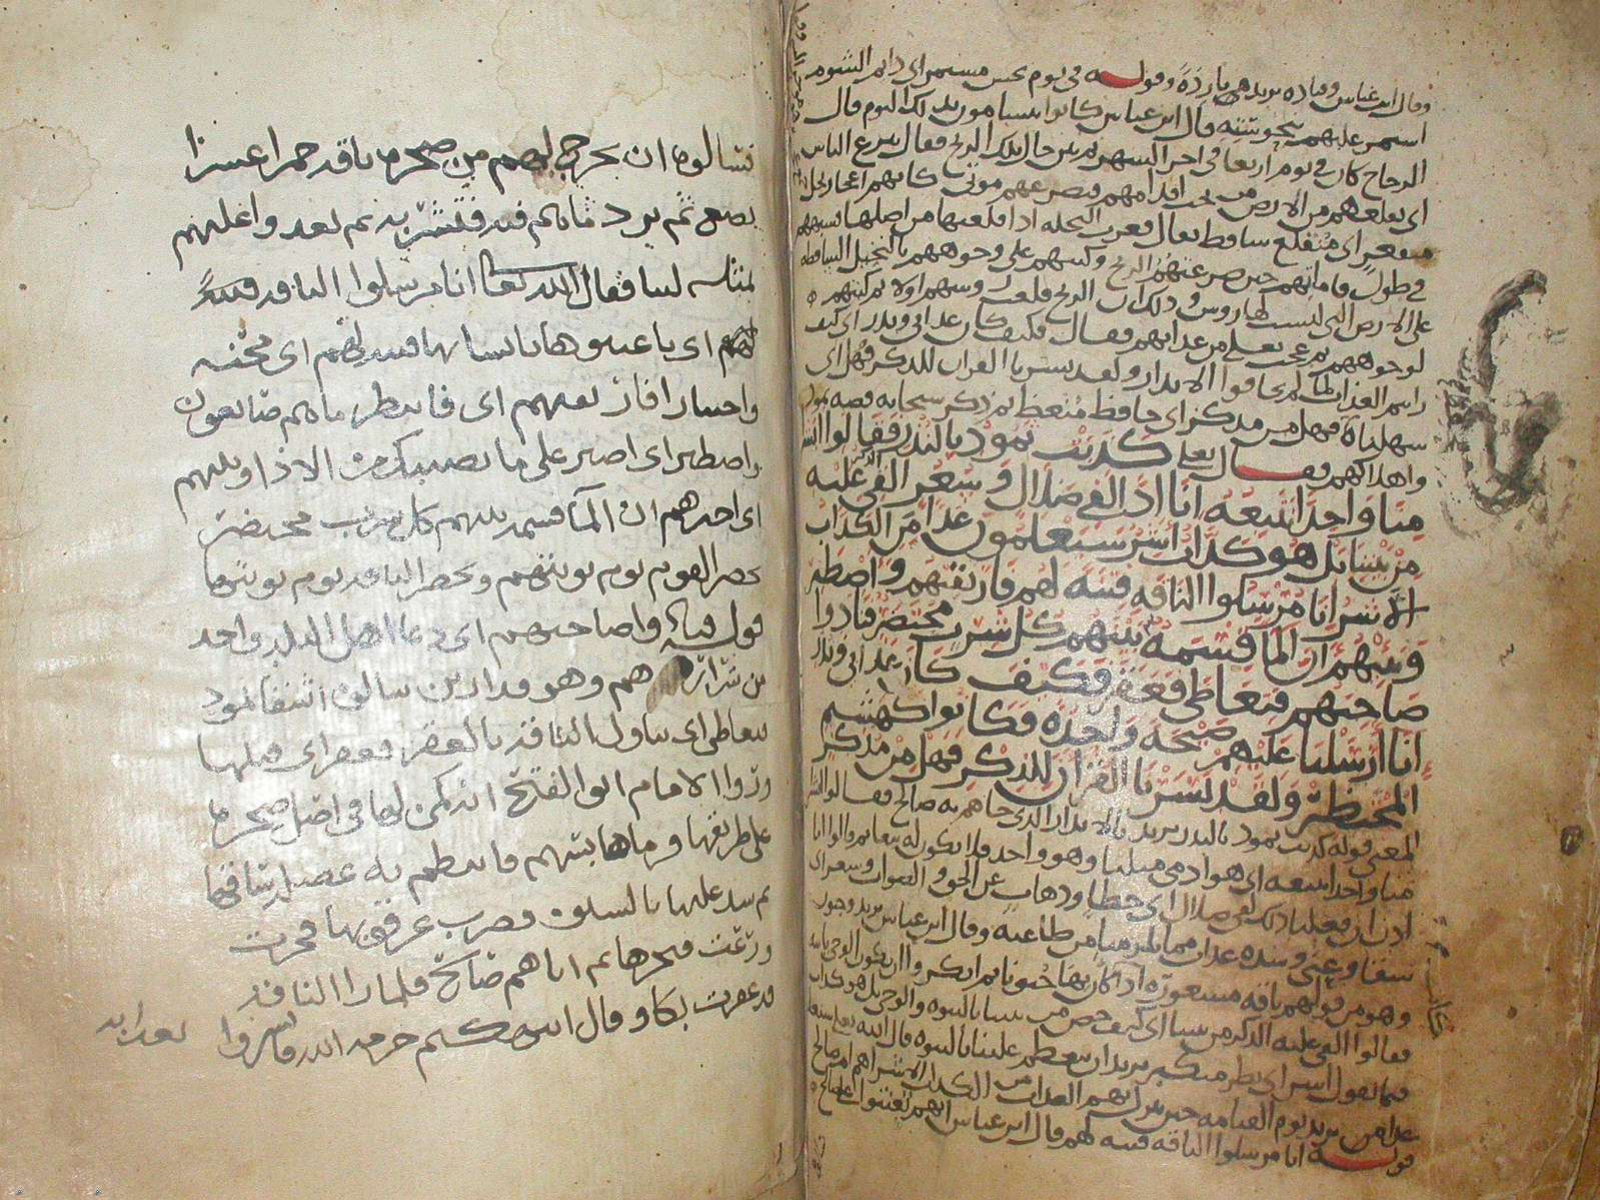 وقال ابن عباس وقتاده يريد هي باردة وقوله في يوم نحس مستمر اى دايم الشوم
استمر عليهم بنحوسته قال ابن عباس كانوا يتشامون بذلك اليوم قال
الزجاج كان في يوم اربعا في اخر الشهر ثم بين حال تلك الريح فقال تنزع الناس
اى تقلعهم من الارض من تحت اقدامهم فتصرعهم موتى كانهم اعجاز نخل
منقعر اى منقلع ساقط يقال قعرت النخله اذا قلعتها من اصلها تشبيههم
في طول قاماتهم حين صرعتهم الريح وكبتهم على وجوههم بالنخيل الساقطه
على الارض التي ليست لها روس وذلك ان الريح قلعت روسهم اولا ثم كبتهم
لوجوههم ثم عجب تعلى من عذابهم فقال فكيف كان عذابي ونذر اى كيف
رايتم العذاب لما لم يخافوا الانذار ولقد يسرنا القران للذكر فهل اى
سهلناه فهل من مدكر اى حافظ متعظ ثم ذكر سبحانه قصه ثمود
واهلاكهم فقال تعلى كذبت ثمود بالنذر فقالوا ابشر
منا واحدا نتبعه انا اذا لفي ضلال وسعر القى الذكر عليه
من بيننا بل هو كذاب اشر سيعلمون غدا من الكذاب
الاشر انا مرسلوا الناقه فتنه لهم فارتقبهم واصطبر
ونبئهم ان الما قسمه بينهم كل شرب محتضر فنادوا
صاحبهم فتعاطى فعقر فكيف كان عذابي ونذر
انا ارسلنا عليهم صيحه واحده فكانوا كهشيم
المحتظر ولقد يسرنا القران للذكر فهل من مدكر
المعنى قوله كذبت ثمود بالنذر يريد بالانذار الذى جاهم به صالح فقالوا ابشرا
منا واحدا نتبعه اى هو ادمي مثلنا وهو واحد فلا نكون له تبعا ثم قالوا انا
اذن ان فعلنا ذلك لفي ضلال اى خطا وذهاب عن الحق والصواب وسعر اى
شقا وعنى وشده عذاب مما يلزمنا من طاعته وقال ابن عباس يريد وجنون
وهو من قولهم ناقه مسعوره اذا كان بها جنون ثم انكروا ان يكون الوحي ياتيه
فقالوا القي عليه الذكر من بيننا اى كيف خص من بيننا بالنبوه والوحي بل هو كذاب
فيما يقول اشر اى بطر متكبر يريد ان يتعظم علينا بالنبوه قال الله تعلى سيعلمون
غدا من يريد يوم القيامه حين ينزل بهم العذاب من الكذاب الاشر اهم ام صالح
قوله انا مرسلوا الناقه فتنه لهم قال ابن عباس انهم تعنتوا على صالح
فسالوه ان يخرج لهم من صخره ناقه حمرا عشرا
تضع ثم ترد ماهم فتشربه ثم تعد واعليهم
بمثله لبنا فقال الله تعا انا مرسلوا الناقه فتنه
لهم اى باعثوها بانسابها فتنه لهم اى محنه
واختبارا فارتقبهم اى فانتظر ما هم صانعون
واصطبر اى اصبر على ما يصيبك من الاذا ونبيهم
اى اخبرهم ان الما قسمه بينهم كل شرب محتضر
يحضر القوم يوم نوبتهم وتحضر الناقه يوم نوبتها
قوله فنادوا صاحبهم اى دعا اهل المدينه واحد
من شرارهم وهو قدار بن سالف اشقا ثمود
فتعاطى اى تناول الناقه بالعقر فعقر اى قتلها
وروا الامام ابو الفتح انه كمن لها في اصل صخره
على طريقها فرماها بسهم فانتظم به عضله ساقها
ثم شد عليها بالسيف فضرب عرقوبها فخرت
ورغت فنحرها ثم اتاهم صالح فلما راا الناقه
قد عقرت بكا وقال انتهكتم حرمه الله فابشروا بعذابه